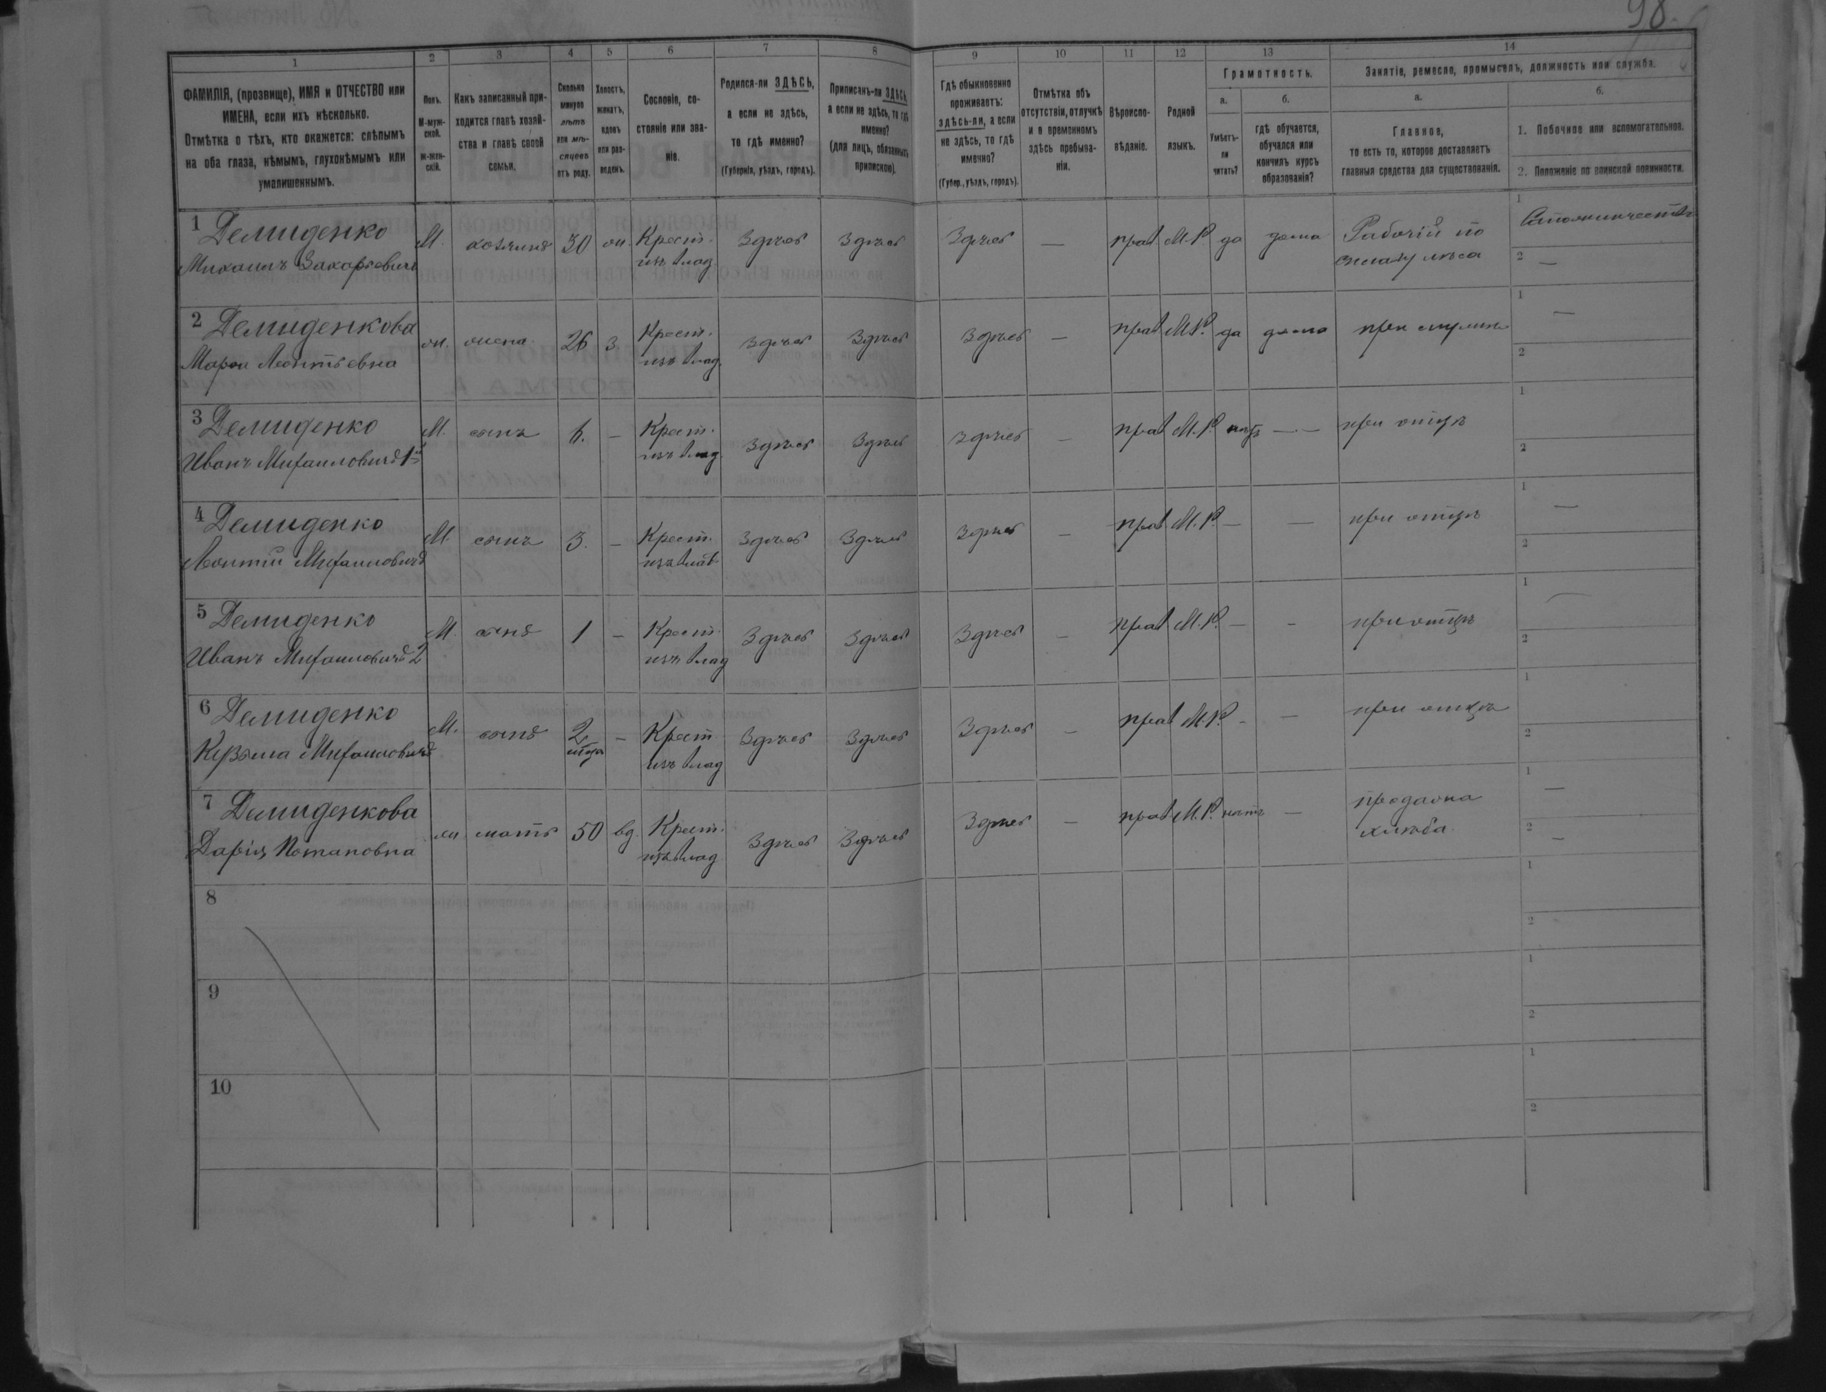 98.
1 2 3 4 5 6 7 8 9 10 11 12 13 14
ФАМИЛІЯ, (прозвище), ИМЯ и ОТЧЕСТВО или
ИМЕНА, если ихъ нѣсколько.
Отмѣтка о тѣхъ, кто окажется: слѣпымъ
на оба глаза, нѣмымъ, глухонѣмымъ или
умалишеннымъ.
Полъ.
М-муж-
ской.
ж-жен-
скій.
Какъ записанный при-
ходится главѣ хозяй-
ства и главѣ своей
семьи.
Сколько
минуло
лѣтъ
или мѣ-
сяцевъ
отъ роду.
Холостъ,
женатъ,
вдовъ
или раз-
веденъ.
Сословіе, со-
стояніе или зва-
ніе.
Родился-ли ЗДѢСЬ,
а если не здѣсь,
то гдѣ именно?
(Губернія, уѣздъ, городъ).
Приписанъ-ли ЗДѢСЬ,
а если не здѣсь, то гдѣ
именно?
(для лицъ, обязанныхъ
припискою).
Гдѣ обыкновенно
проживаетъ:
здѣсь-ли, а если
не здѣсь, то гдѣ
именно?
(Губер., уѣздъ, городъ).
Отмѣтка объ
отсутствіи, отлучкѣ
и о временномъ
здѣсь пребыва-
ніи.
Вѣроиспо-
вѣданіе.
Родной
языкъ.
Грамотность.
а.
Умѣетъ-
ли
читать?
б.
гдѣ обучается,
обучался или
кончилъ курсъ
образованія?
Занятіе, ремесло, промыселъ, должность или служба.
а.
Главное,
то есть то, которое доставляетъ
главныя средства для существованія.
б.
1. Побочное или вспомогательное.
2. Положеніе по воинской повинности.
1 Демиденко
Михаилъ Захарьевичъ
М. хозяинъ 30 Крест. Здѣсь Здѣсь Здѣсь — прав М.Р. да дома Рабочій по
изъ влад. сплаву лѣса
1
2 —
2 Демиденкова
Марѳа Леонтьевна
жена 26 з Крест. Здѣсь Здѣсь Здѣсь — прав М.Р. да дома при
изъ влад.
1 —
2
3 Демиденко
Иванъ Михаиловичъ 1й
М. сынъ 6. — Крест. Здѣсь Здѣсь Здѣсь — прав М.Р. нѣтъ — при отцѣ
изъ влад.
1
2
4 Демиденко
Леонтій Михаиловичъ
М. сынъ 3. — Крест. Здѣсь Здѣсь Здѣсь — прав М.Р. — — при отцѣ
1 —
2
5 Демиденко
Иванъ Михаиловичъ 2
М. сынъ 1 — Крест. Здѣсь Здѣсь Здѣсь — прав М.Р. — - при отцѣ
изъ влад
1 —
2
6 Демиденко
Кузьма Михаиловичъ
М. сынъ 2 — Крест Здѣсь Здѣсь Здѣсь — прав М.Р. - — при отцѣ
изъ влад
1
2
7 Демиденкова
Дарія Потаповна
мать 50 вд. Крест. Здѣсь Здѣсь Здѣсь — прав М.Р. нѣтъ — продажа
изъ влад хлѣба
1 —
2 —
8
1
2
9
1
2
10
1
2